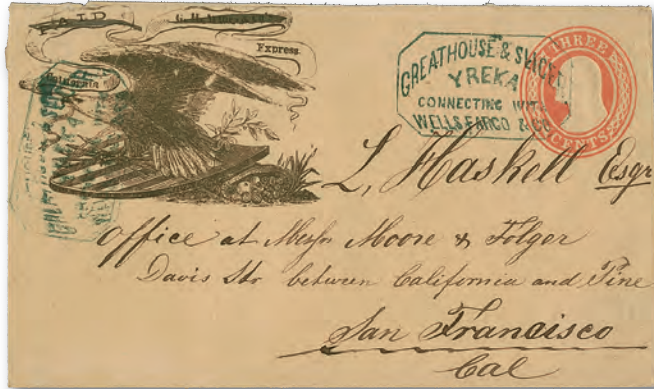 Express.
GREATHOUSE & SLICER
YREKA
CONNECTING WITH
WELLS FARGO & CO
THREE
CENTS
L, Haskell Esqr
Office at Messrs Moore & Folger
Davis Str between California and Pine
San Francisco
Cal